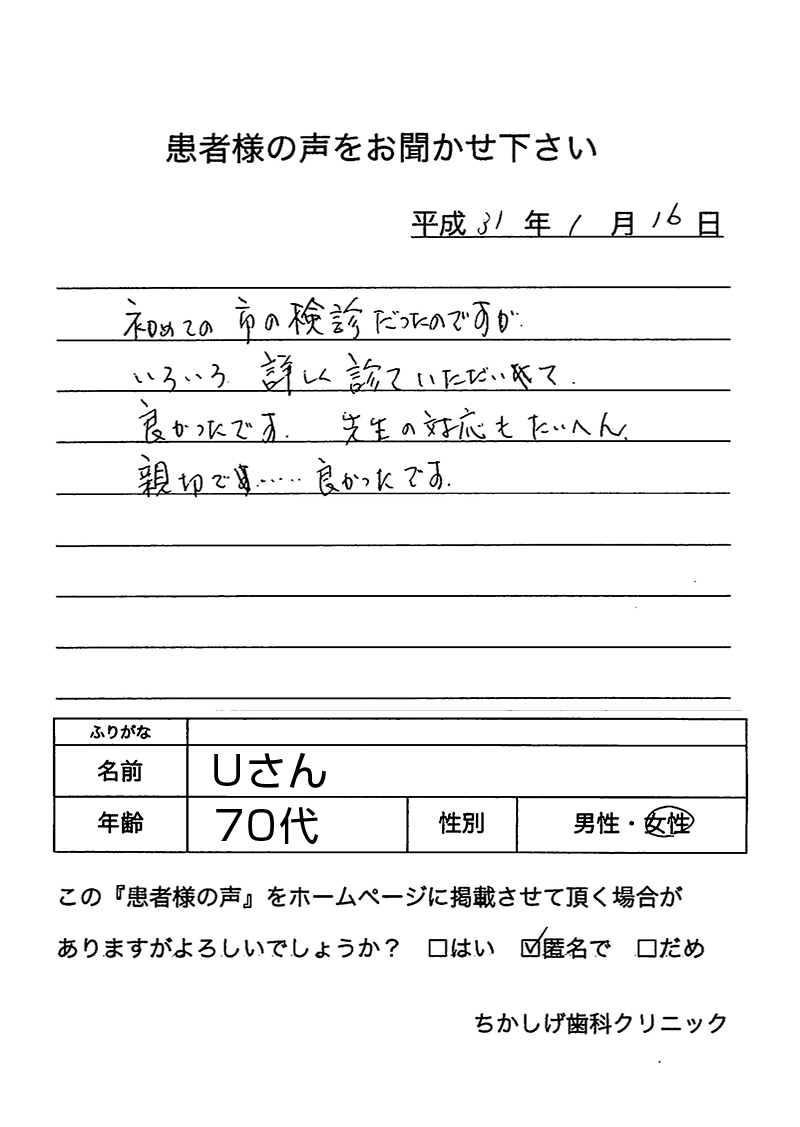 患者様の声をお聞かせ下さい
平成 31 年 1 月 16 日
初めての 市の検診だったのですが.
いろいろ 詳しく 診ていただいて.
良かったです. 先生の対応もたいへん.
親切で‥‥‥良かったです.
ふりがな
名前 Uさん
年齢 70代 性別 男性・女性
この『患者様の声』をホームページに掲載させて頂く場合が
ありますがよろしいでしょうか？ □はい ☑匿名で □だめ
ちかしげ歯科クリニック